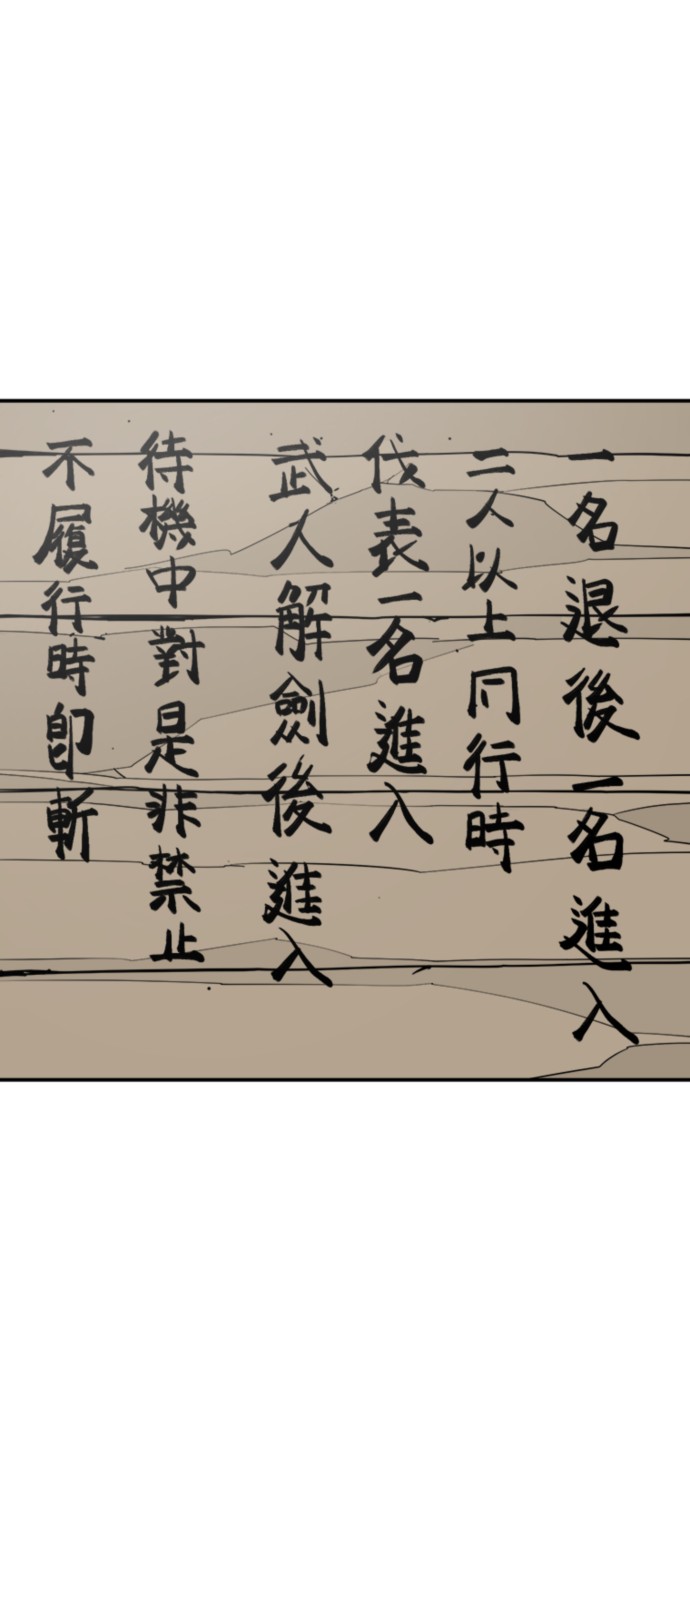 一名退後一名進入
二人以上同行時
伐表一名進入
武人解劍後進入
待機中對是非禁止
不履行時卽斬